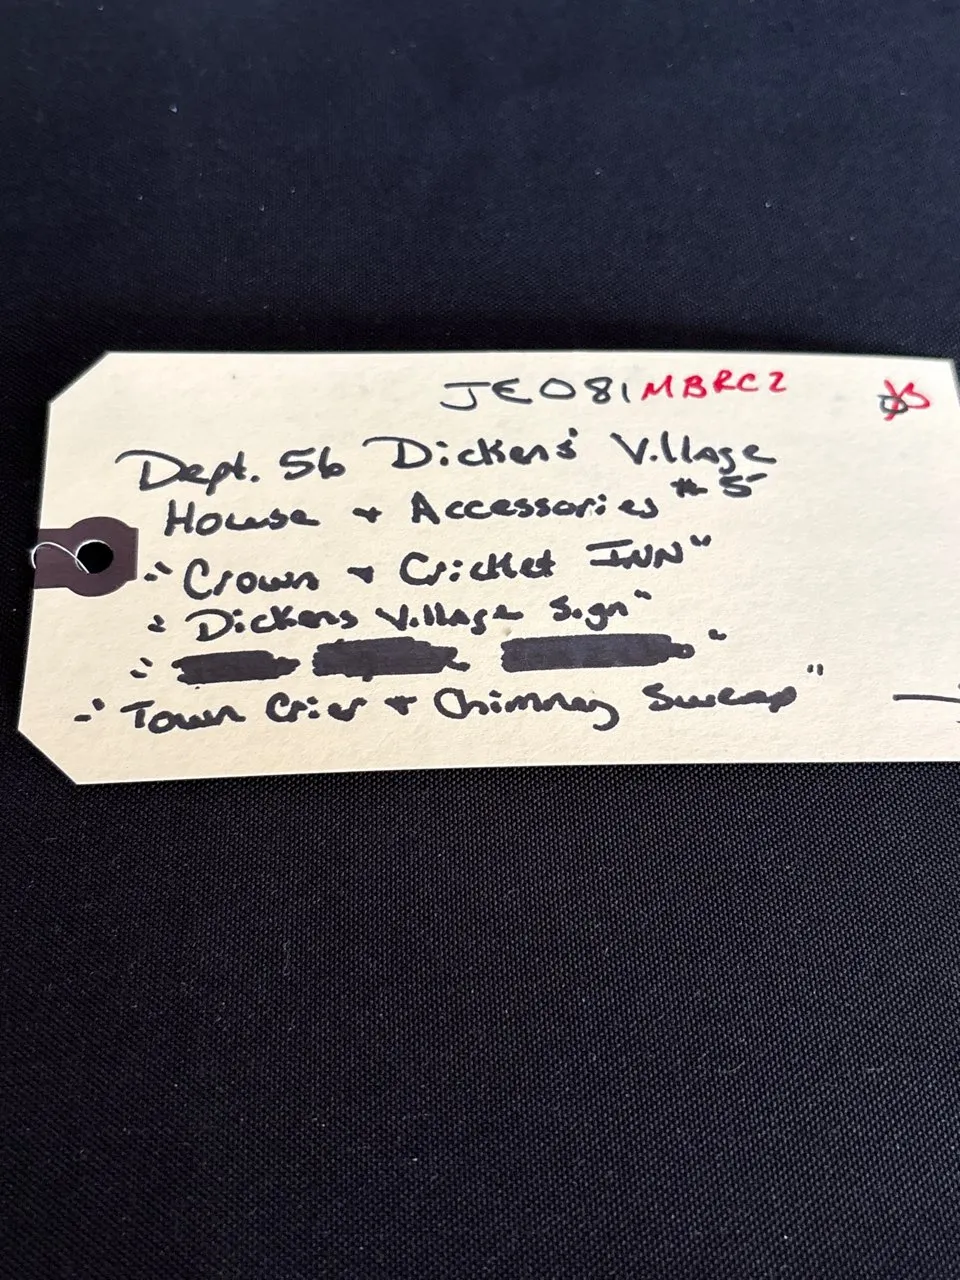 JE081MBRCZ
Dept. 56 Dickens' Village
House + Accessories #5
"Crown + Cricket INN"
"Dickens Village Sign"
" "
"Town Crier + Chimney Sweep"